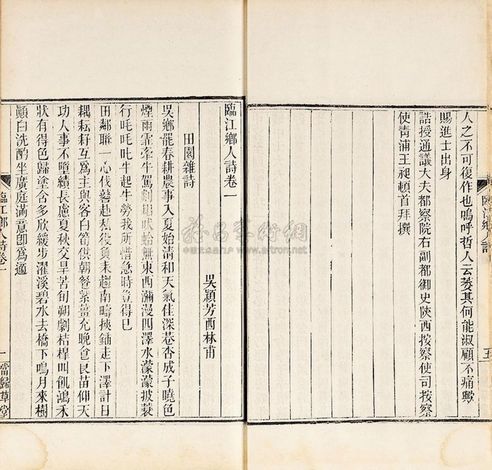 人之不可復作也嗚呼哲人云萎其何能淑顧不痛歟
賜進士出身
誥授通議大夫都察院右副都御史陝西按察使司按察
使青浦王昶頓首拜撰
五
臨江鄉人詩卷一
吳穎芳西林甫
田園雜詩
吳鄉罷春耕農事入夏始清和天氣佳深巷杏成子曉色
煙雨霏牽牛駕剡耜畎蛤無東西瀰漫四澤水濛濛披蓑
行吒吒叱牛起牛勞我所惜急時登得已
田鄰聯一心伐鼓起私後負耒趨南疇挾鍤走下澤計日
耦耘耔互爲主與客白筍供朝餐紫薑充晚食艮苗仰天
功人事不墮績長慮夏秋交旱苦旬朔劇桔橰叫飢鴻禾
狀有得色歸塗含多欣緩步濯溪碧水去橋下鳴月來樹
顛白洗酌坐廣庭滿意卽爲適
臨江鄉人詩卷一
一
當歸草堂